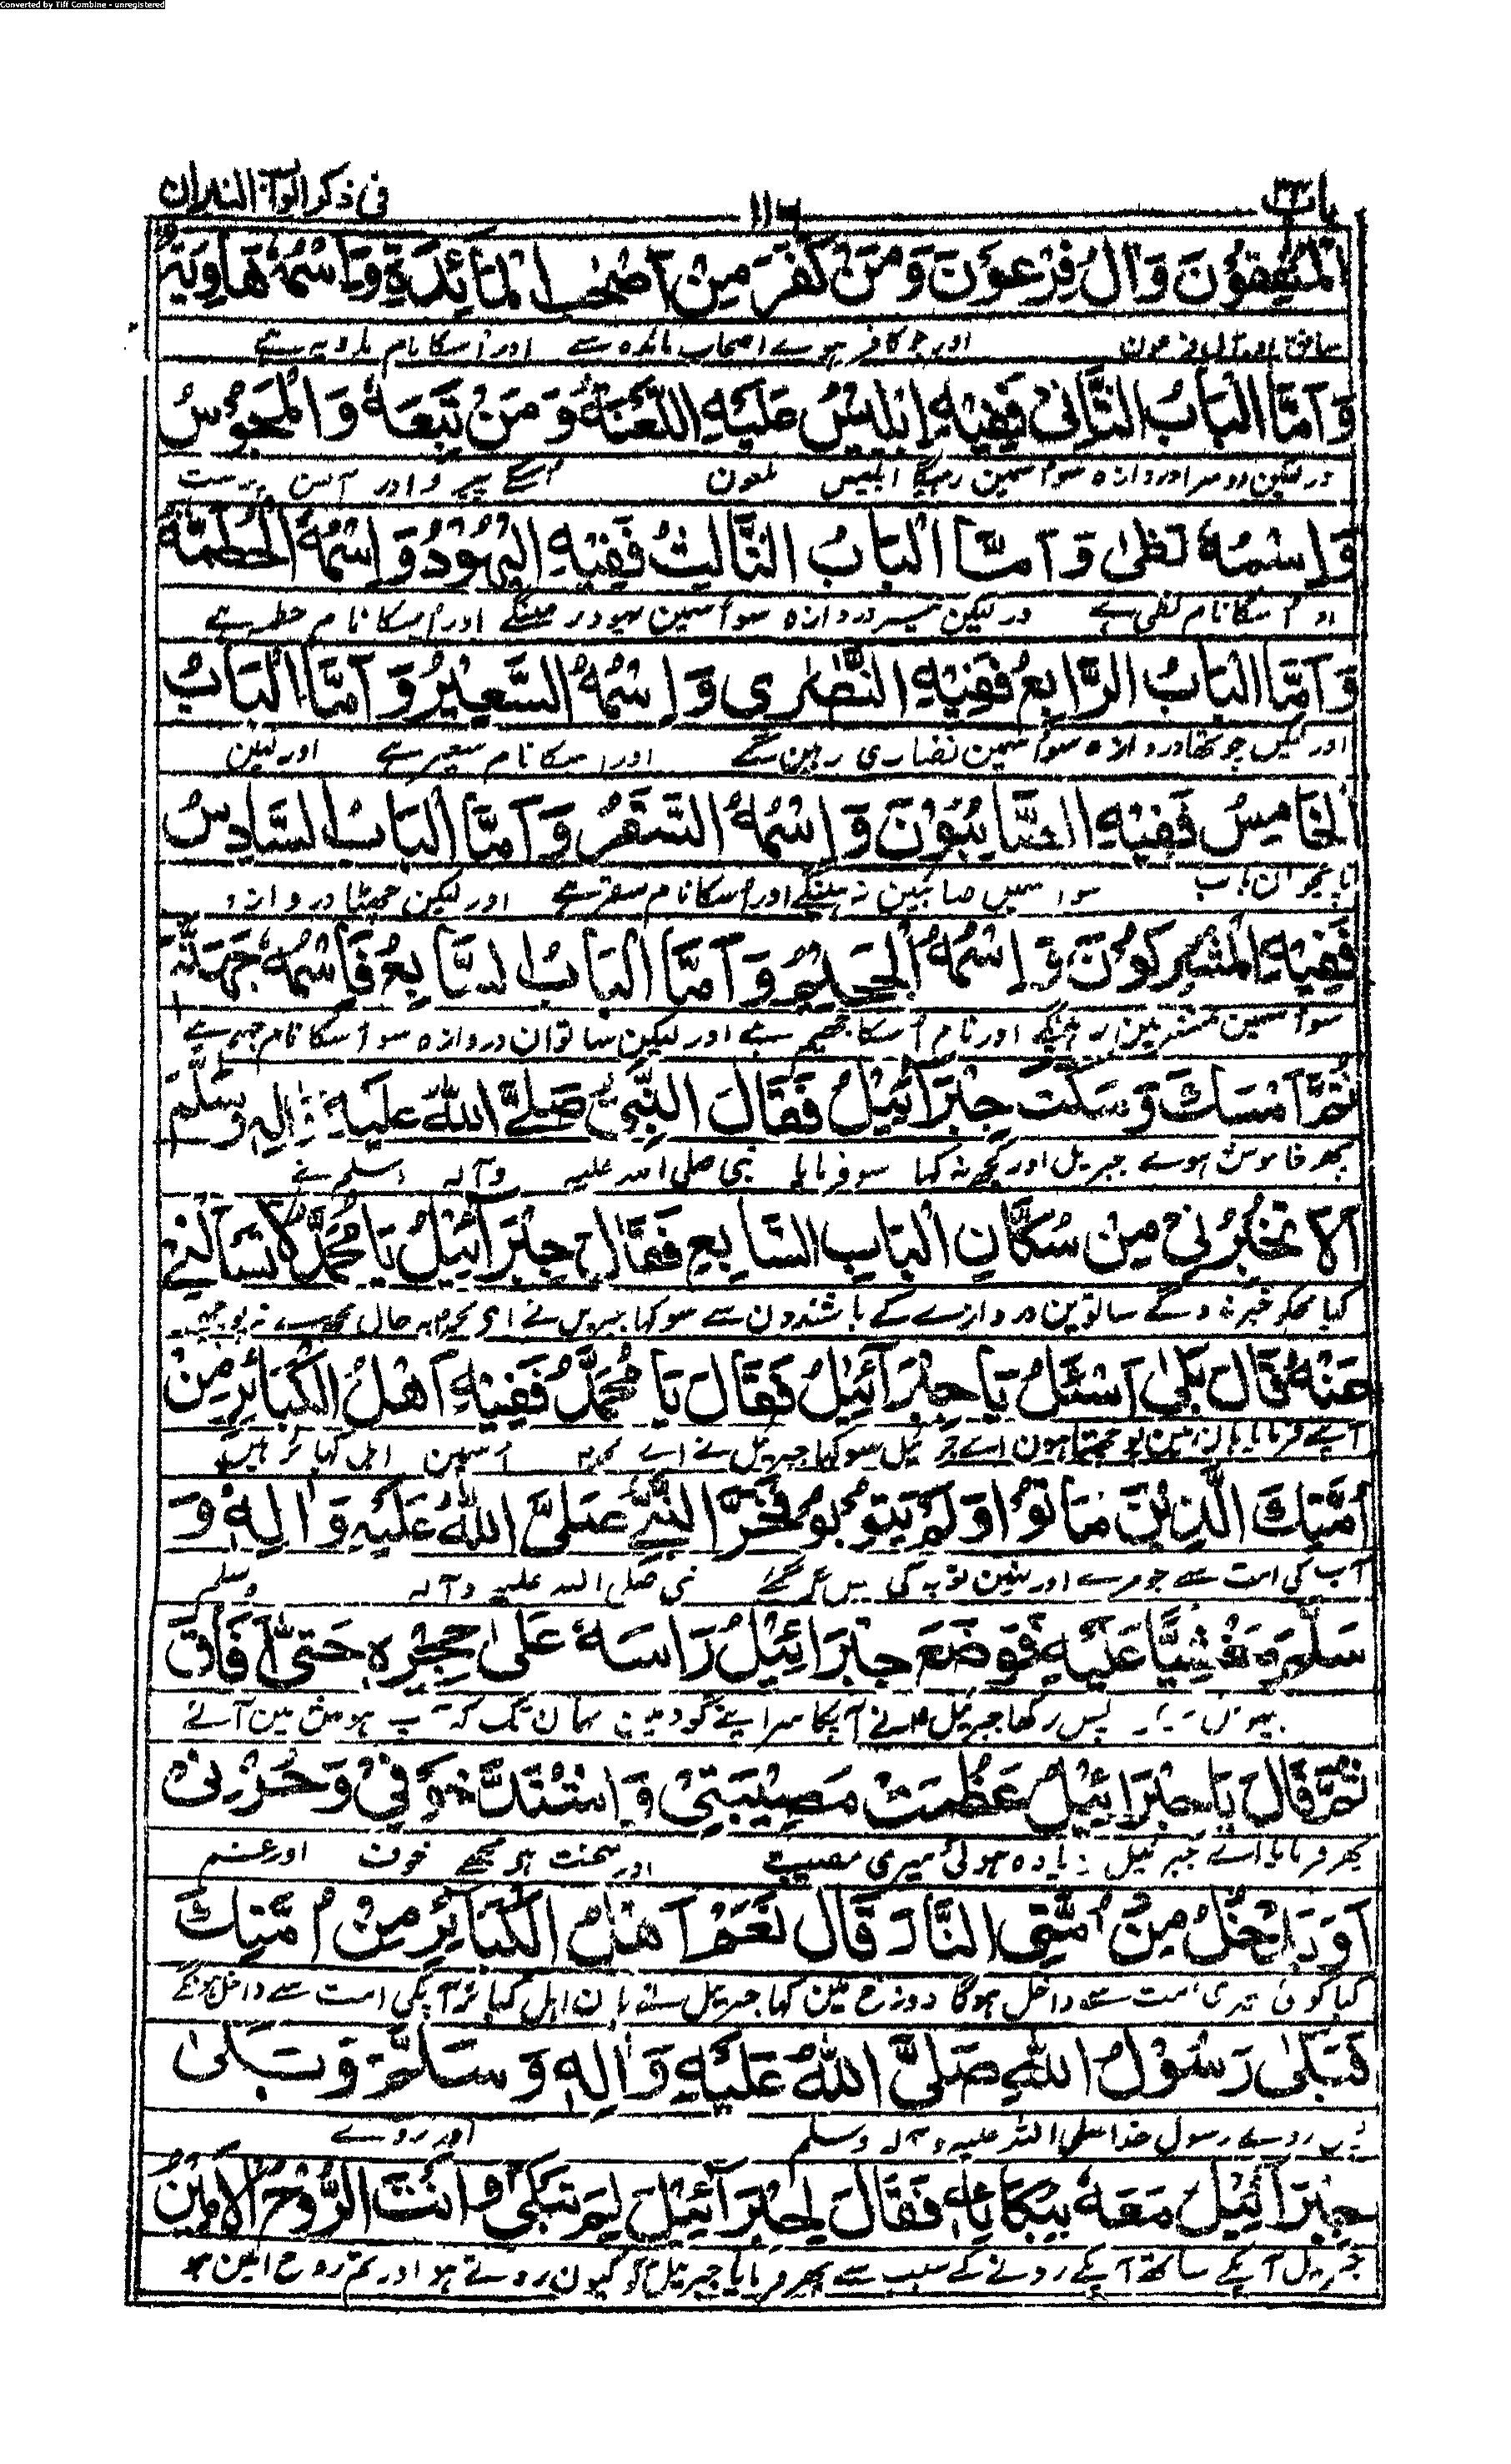 Converted by Tiff Combine - unregistered
باب ٣٣
١١٦
فی ذکر ابواب النیران
الْمُنٰفِقُوْنَ وَاٰلُ فِرْعَوْنَ وَمَنْ كَفَرَ مِنْ اَصْحٰبِ الْمَائِدَةِ وَاِسْمُهٗ هَاوِيَةٌ
منافق اور آل فرعون اور جو کافر ہوے اصحاب مائدہ سے اور اُسکا نام ہاویہ ہے
وَاَمَّا الْبَابُ الثَّانِیْ فَفِيْهِ اِبْلِيْسُ عَلَيْهِ اللَّعْنَةُ وَمَنْ تَبِعَهٗ وَالْمَجُوْسُ
ورلیکن دوسرا دروازہ سو اُسمین رہیگا ابلیس ملعون اُسکے پیرو اور آتش پرست
وَاِسْمُهٗ لَظٰى وَاَمَّا الْبَابُ الثَّالِثُ فَفِيْهِ الْيَهُوْدُ وَاِسْمُهُ الْحُطَمَةُ
اور اُسکا نام لظی ہے ورلیکن تیسرا دروازہ سو اُسمین یہود رہینگے اور اُسکا نام حطمہ ہے
وَاَمَّا الْبَابُ الرَّابِعُ فَفِيْهِ النَّصٰرٰى وَاِسْمُهُ السَّعِيْرُ وَاَمَّا الْبَابُ
اور لیکن چوتھا دروازہ سو اُسمین نصاری رہین گے اور اسکا نام سعیر ہے اور لیکن
الْخَامِسُ فَفِيْهِ الصَّابِئُوْنَ وَاِسْمُهُ السَّقَرُ وَاَمَّا الْبَابُ السَّادِسُ
پانچوان باب سو اسمیں صابئین رہینگے اور اُسکا نام سقر ہے اور لیکن چھٹا دروازہ
فَفِيْهِ الْمُشْرِكُوْنَ وَاِسْمُهُ الْجَحِيْمُ وَاَمَّا الْبَابُ السَّابِعُ فَاسْمُهٗ جَهَنَّمُ
سو اُسمین مشرکین رہینگے اور نام اُسکا جحیم ہے اور لیکن ساتوان دروازہ سو اُسکا نام جہنم ہے
ثُمَّ اَمْسَكَ وَسَكَتَ جِبْرَآئِيْلُ فَقَالَ النَّبِيُّ صَلَّى اللّٰهُ عَلَيْهِ وَاٰلِهٖ وَسَلَّمَ
پھر خاموش ہوے جبریل اور کچھ نہ کہا سو فرمایا نبی صلی اللہ علیہ وآلہ وسلم نے
اَلَا تُخْبِرُنِیْ مِنْ سُكَّانِ الْبَابِ السَّابِعِ فَقَالَ جِبْرَآئِيْلُ يَا مُحَمَّدُ لَا تَسْاَلْنِیْ
کیا مجکو خبر نہ دوگے ساتوین دروازے کے باشندون سے سو کہا جبریل نے ای محمد یہ حال مجھسے نہ پوچھیے
عَنْهُ قَالَ بَلٰى اَسْئَلُ يَا جِبْرَآئِيْلُ فَقَالَ يَا مُحَمَّدُ فَفِيْهِ اَهْلُ الْكَبَائِرِ مِنْ
آپنے فرمایا ہان مین پوچھتا ہون اے جبرئیل سو کہا جبریل نے اے محمد اُسمین اہل کبائر ہین
اُمَّتِكَ الَّذِيْنَ مَاتُوْا وَلَمْ يَتُوْبُوْا فَخَرَّ النَّبِيُّ صَلَّى اللّٰهُ عَلَيْهِ وَاٰلِهٖ وَ
آپ کی امت سے جو مرے اور نہین توبہ کی پس گر گئے نبی صلی اللہ علیہ وآلہ وسلم
سَلَّمَ مَغْشِيًّا عَلَيْهِ فَوَضَعَ جِبْرَائِيْلُ رَاسَهٗ عَلٰى حِجْرِهٖ حَتّٰى اَفَاقَ
پس رکھا جبریل نے آپکا سر اپنے گود مین یہان تک کہ آپ ہوش مین آئے
ثُمَّ قَالَ يَا جِبْرَائِيْلُ عَظُمَتْ مُصِيْبَتِیْ وَاشْتَدَّ خَوْفِیْ وَحُزْنِیْ
پھر فرمایا اے جبرئیل زیادہ ہوئی میری مصیبت اور سخت ہو مجھے خوف اور غم
اَوَ يَدْخُلُ مِنْ اُمَّتِی النَّارَ قَالَ نَعَمْ اَهْلُ الْكَبَائِرِ مِنْ اُمَّتِكَ
کیا کوئی میری امت سے داخل ہوگا دوزخ مین کہا جبریل نے ہان اہل کبائر آپکی امت سے داخل ہونگے
فَبَكٰى رَسُوْلُ اللّٰهِ صَلَّى اللّٰهُ عَلَيْهِ وَاٰلِهٖ وَسَلَّمَ وَبَكٰى
پس روے رسول خدا صلی اللہ علیہ وآلہ وسلم اور روے
جِبْرَآئِيْلُ مَعَهٗ بِبُكَائِهٖ فَقَالَ لِجِبْرَآئِيْلَ لِمَ تَبْكِیْ وَاَنْتَ الرُّوْحُ الْاَمِيْنُ
جبریل آپکے ساتھ آپکے رونے کے سبب سے پھر فرمایا جبریل کو کیون روتے ہو اور تم روح امین ہو